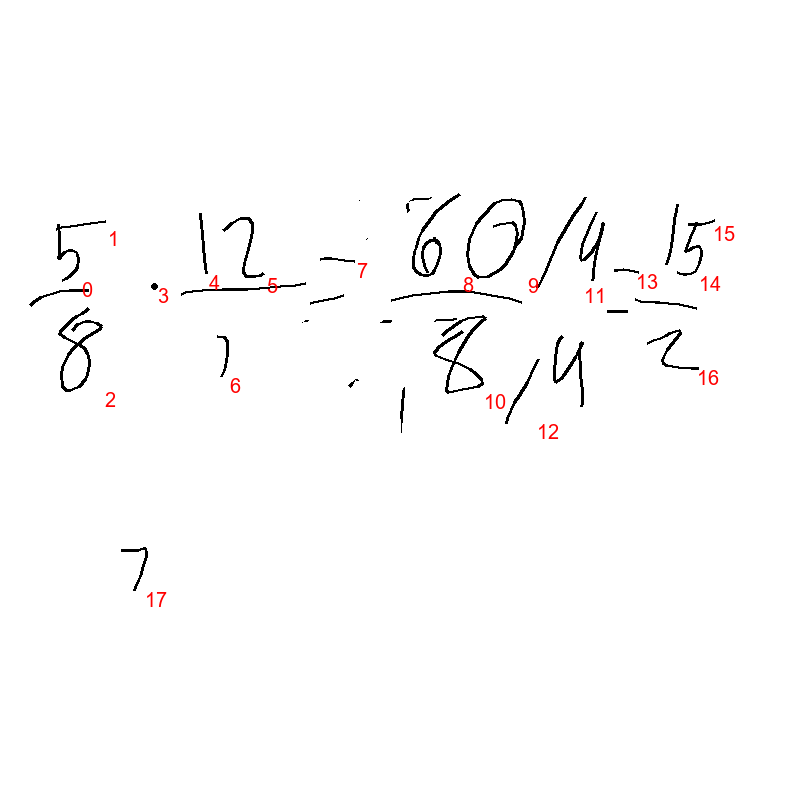 5/8 · 12/1 = 60/4 / 8/4 = 15/2
7
0 1 2 3 4 5 6 7 8 9 10 11 12 13 14 15 16 17